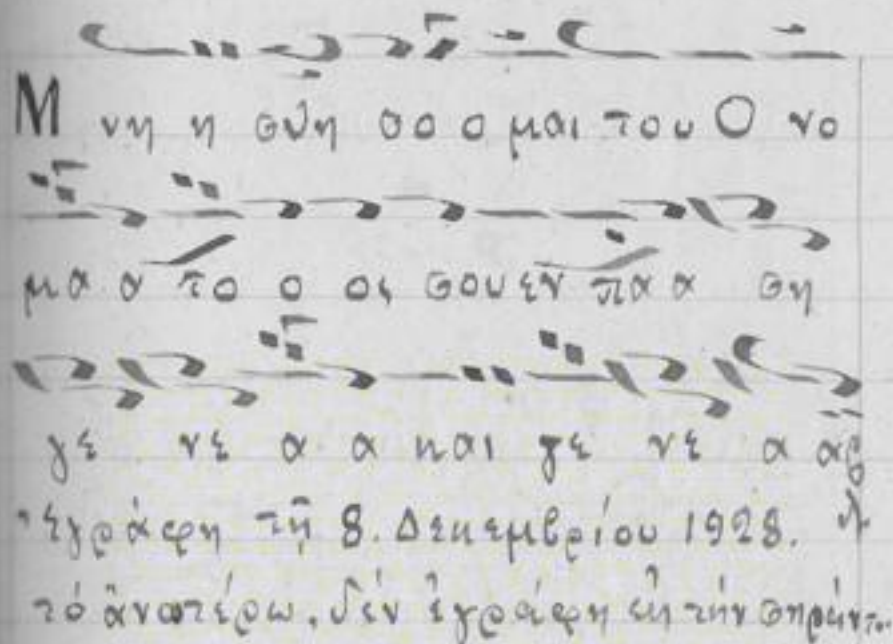 Μ νη η σθη σο ο μαι του Ο νο
μα α το ο ος σου εν πα α ση
γε νε α α και γε νε α
Ἐγράφη τῇ 8. Δεκεμβρίου 1928.
τὸ ἀνωτέρω, δέν ἐγράφη εἰς τήν